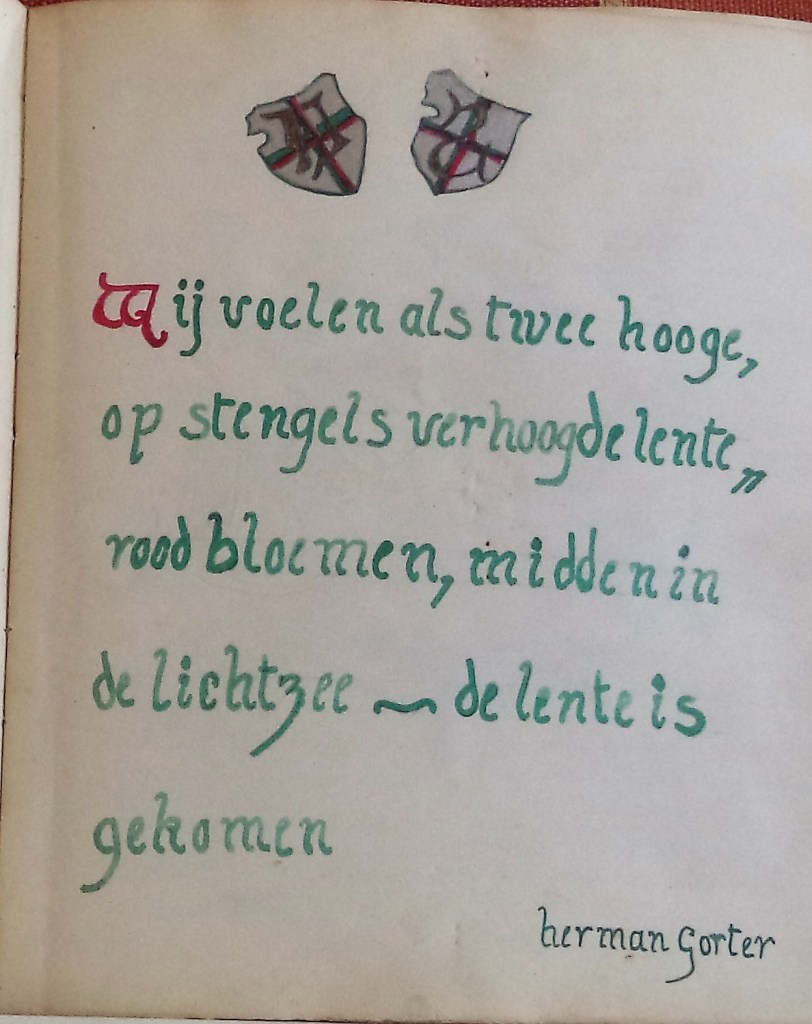 Wij voelen als twee hooge,
op stengels verhoogde lente„
rood bloemen, midden in
de lichtzee ~ de lente is
gekomen
herman Gorter